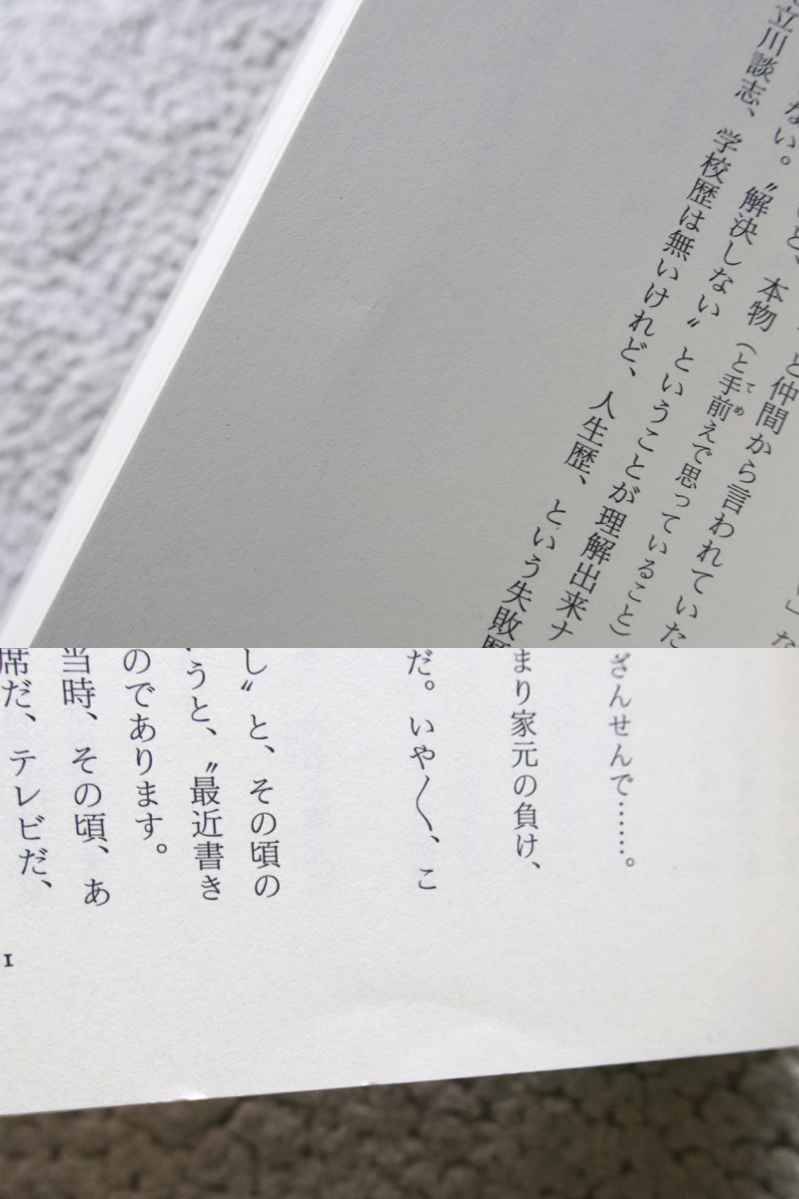 と仲間から言われていた
本物（と手前えで思っていること）
ない。〝解決しない〟ということが理解出来ナ
立川談志、学校歴は無いけれど、
人生歴、という失敗
ざんせんで……。
まり家元の負け、
だ。いや〳〵、こ
し〟と、その頃の
うと、〝最近書き
のであります。
当時、その頃、あ
席だ、テレビだ、
1